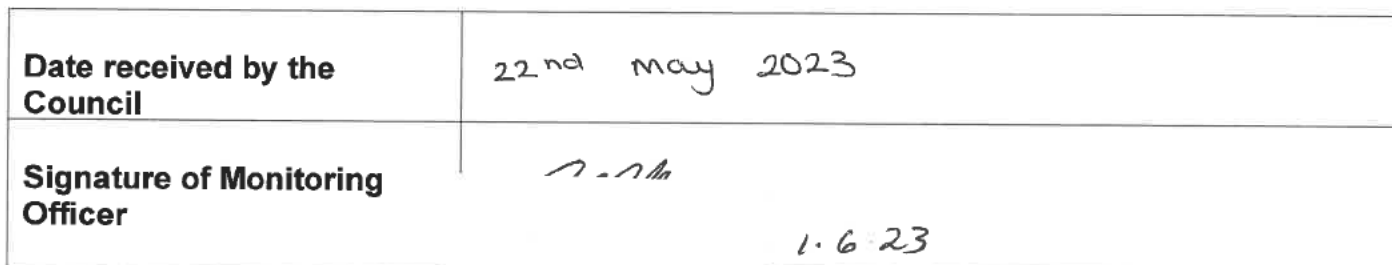 Date received by the
Council
22nd may 2023
Signature of Monitoring
Officer
1.6.23